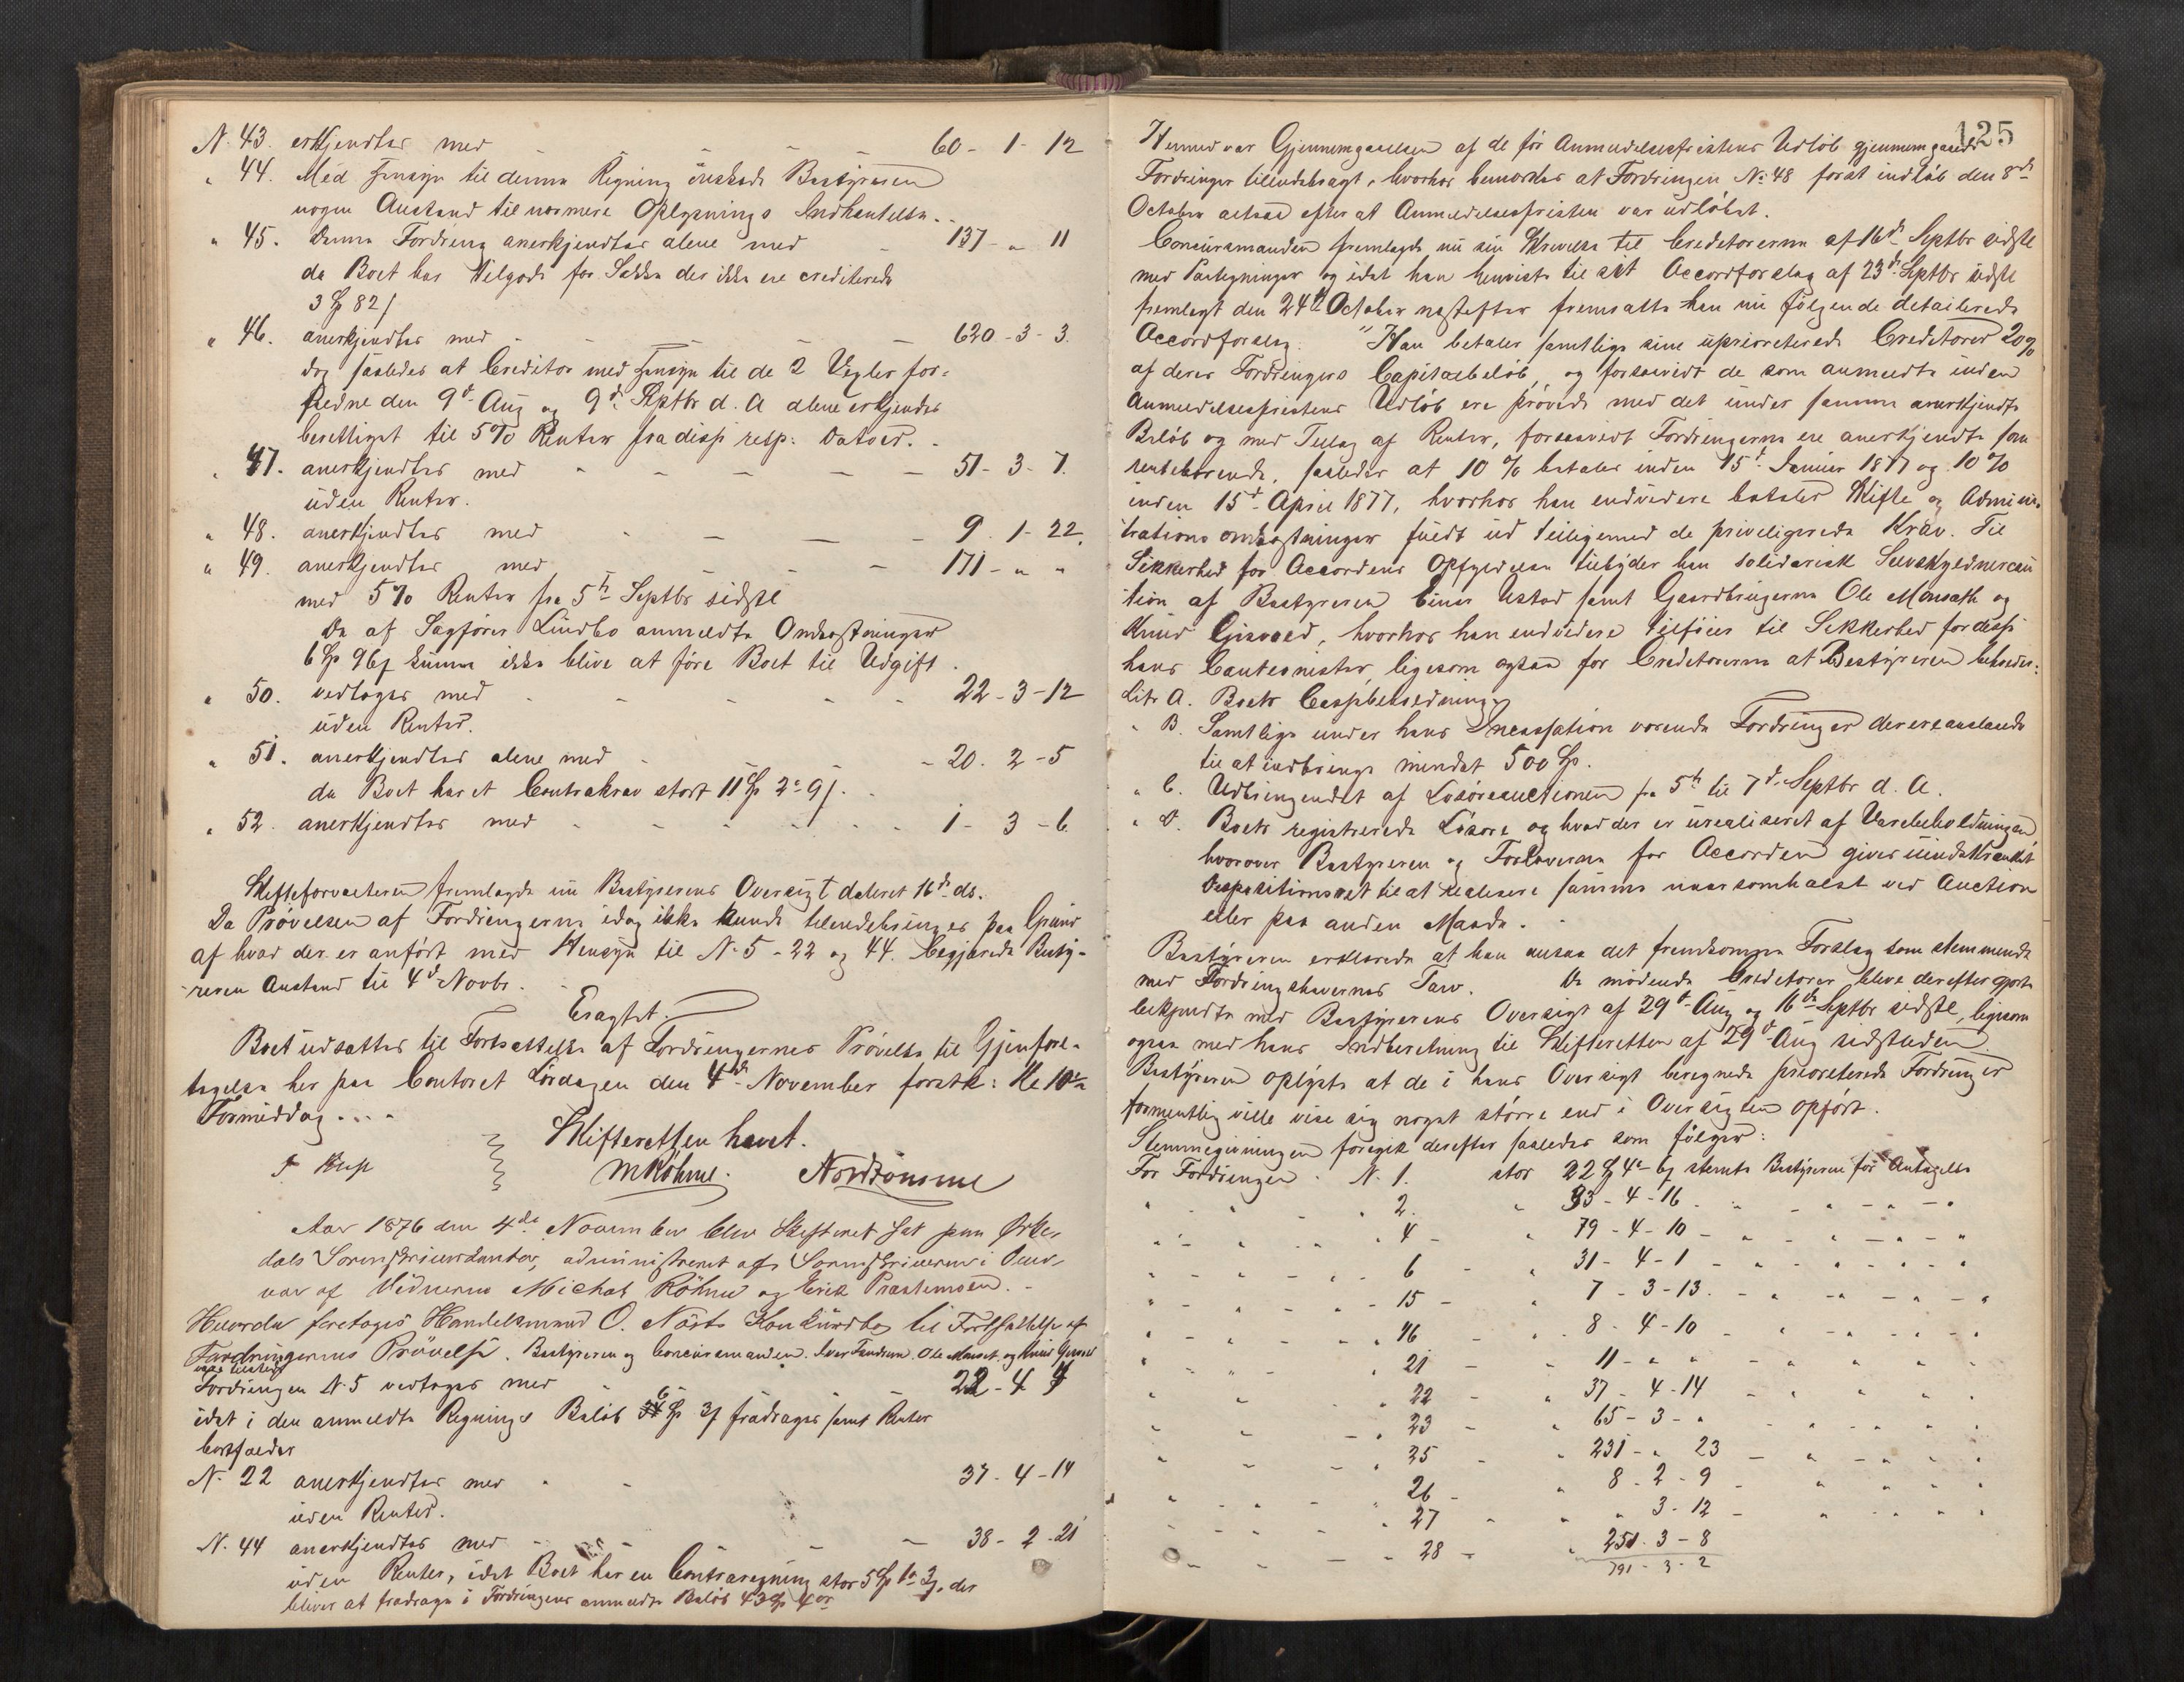 N. 43. erkjendtes med - - - - 60 - 1 - 12
" 44. Med Hensyn til denne Regning önskede Bestyreren
nogen Anstand til nærmere Oplysnings Indhentelse. -
" 45. Denne Fordring anerkjendtes alene med - 137 - " 11
da Boet har Tilgode for Sække der ikke ere crediterede
3 Sp 82 s
" 46. anerkjendtes med - - - - 620 - 3 - 3.
dog saaledes at Creditor med Hensyn til de 2 Vexler for-
faldne den 9de Aug og 9de Septbr d. A alene erkjendes
berettiget til 5% Renter fra disse resp: Datoer. -
" 47. anerkjendtes med - - - - 51 - 3 - 7.
uden Renter.
" 48. anerkjendtes med - - - - 9. 1 - 22.
" 49. anerkjendtes med - - - 171 - " "
med 5% Renter fra 5te Septbr sidstl
De af Sagfører Lindbo anmeldte Omkostninger
6 Sp 96 s kunne ikke blive at føre Boet til Udgift.
" 50. vedtoges med - - - - 22 - 3 - 12
uden Renter.
" 51. anerkjendtes alene med - - - 20. 2 - 5
da Boet har et Contrakrav stort 11 Sp 2 - 9 s.
" 52. anerkjendtes med - - - - 1 - 3 - 6
Skifteforvalteren fremlagde nu Bestyrerens Oversigt dateret 16de ds.
Da Prövelsen af Fordringerne idag ikke kunde tilendebringes paa Grund
af hvad der er anfört med Hensyn til N. 5 - 22 og 44. begjærede Besty-
reren Anstand til 4de Novbr.
Eragtet.
Boet udsattes til Fortsættelse af Fordringernes Prövelse til Gjenfore-
tagelse her paa Contoret Lördagen den 4de November förstk: Kl 10
Formiddag. - - -
Skifteretten hævet.
M Röhme. Nordrönsme
Aar 1876 den 4de November blev Skifteret sat paa Orke-
dals Sorenskriverkontor, administreret af Sorenskriveren i Over-
vær af Vidnerne Michal Röhme og Erik Præstemoen. -
Hvorda foretoges Handelsmand O. Næsts Konkursbo til Fortsættelse af
Fordringernes Prövelse. Bestyreren og Concursmanden. Iver Fandrem. Ole Monset og Knud Grisvol
vare tilstede
Fordringen N. 5 vedtoges med - 22 - 4
idet i den anmeldte Regnings Belöb 6 Sp 3 s fradrages samt Renter
bortfalder
N. 22 anerkjendtes med - - 37 - 4 - 14
uden Renter.
N. 44 anerkjendtes med - - - 38 - 2 - 21
uden Renter, idet Boet har en Contraregning stor 5 Sp 1 - 3 s, der
bliver at fradrage i Fordringens anmeldte Belöb 43 Sp 4 or
125
Hermed var Gjennemgaaelsen af de för Anmeldelsesfristens Udlöb gjennemgaaede
Fordringer tilendebragt, hvorhos bemærkes at Fordringen No 48 först indlöb den 8de
October altsaa efter at Anmeldelsesfristen var udlöbet.
Concursmanden fremlagde nu sin Skrivelse til Creditorerne af 16de Septbr sidstl
med Paategninger og idet han henviste til sit Accordforslag af 23de Septbr sidstl
fremlagt den 24de October næstefter fremsatte han nu fölgende detaillerede
Accordforslag. "Han betaler samtlige sine uprioriterede Creditorer 20%
af deres Fordringers Capitalbelöb, og forsaavidt de som anmeldte inden
Anmeldelsesfristens Udlöb ere prövede med det under samme anerkjendte
Belöb og med Tillæg af Renter, forsaavidt Fordringerne ere anerkjendte som
rentebærende, saaledes at 10% betales inden 15de Januar 1877 og 10%
inden 15de April 1877, hvorhos han endvidere betaler Skifte og Adminis-
trations omkostninger fuldt ud tilligemed de priviligerede Krav. Til
Sikkerhed for Accordens Opfyldelse tilbyder han solidarisk Selvskyldnercau
tion af Bestyreren Einar Ustad samt Gaardbrugerne Ole Monsæth og
Knud Grisvold, hvorhos han endvidere tilföier til Sikkerhed for disse
hans Cautionister, ligesom ogsaa for Creditorerne at Bestyreren beholder:
Litr A. Boets Cassabeholdning
" B. Samtlige under hans Incassation værende Fordringer der ere anslaaede
til at indbringe mindst 500 Sp.
" C. Udbringendet af Lösöreauctionen fra 5te til 7de Septbr d. A.
" D. Boets registrerede Lösöre og hvad der er urealiseret af Varebeholdningen
hvorover Bestyreren og Forloverne for Accorden gives uindskrænket
Dispositionsret til at realisere samme naarsomhelst ved Auction
eller paa anden Maade.
Bestyreren erklærede at han ansaa det fremkomne Forslag som stemmende
med Fordringshavernes Tarv. De mödende Creditorer bleve derefter gjorte
bekjendte med Bestyrerens Oversigt af 29de Aug og 16de Septbr sidstl, ligesom
ogsaa med hans Indberetning til Skifteretten af 29de Aug sidstleden.
Bestyreren oplyste at de i hans Oversigt beregnede prioriterede Fordringer
formentlig ville vise sig noget större end i Oversigten opfört.
Stemmegivningen foregik derefter saaledes som fölger:
For Fordringen N. 1. stor 22 Sp 4 - 6 s stemte Bestyreren for Antagelse
" - - - " 2. " 33 - 4 - 16 - " - " - "
" - - - " 4 - " 79 - 4 - 10 - " - " - "
" - - - " 6 - " 31 - 4 - 1 - " - " - "
" - - - " 15 - " 7 - 3 - 13. - " - " - "
" - - - " 16 - " 8 - 4 - 10 - " - " - "
" - - - " 21 - " 11 - " " - " - " - "
" - - - " 22 - " 37 - 4 - 14 - " - " - "
" - - - " 23 - " 65 - 3 - " - " - " - "
" - - - " 25 - " 231 - " 23 - " - " - "
" - - - " 26 - " 8 - 2 - 9 - " - " - "
" - - - " 27 - " " 3 - 12 - " - " - "
" - - - " 28 - " 251 - 3 - 8
791 - 3 - 2